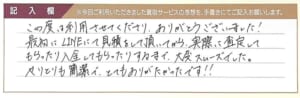 記入欄 ※今回ご利用いただきました買取サービスの感想を、手書きにてご記入お願いします。
この度は利用させてくださり、ありがとうございました!
最初にLINEにて見積をして頂いてから、実際に査定して
もらったり入金してもらったりするまで、大変スムーズでした。
やりとりも簡潔で、とてもありがたかったです!!